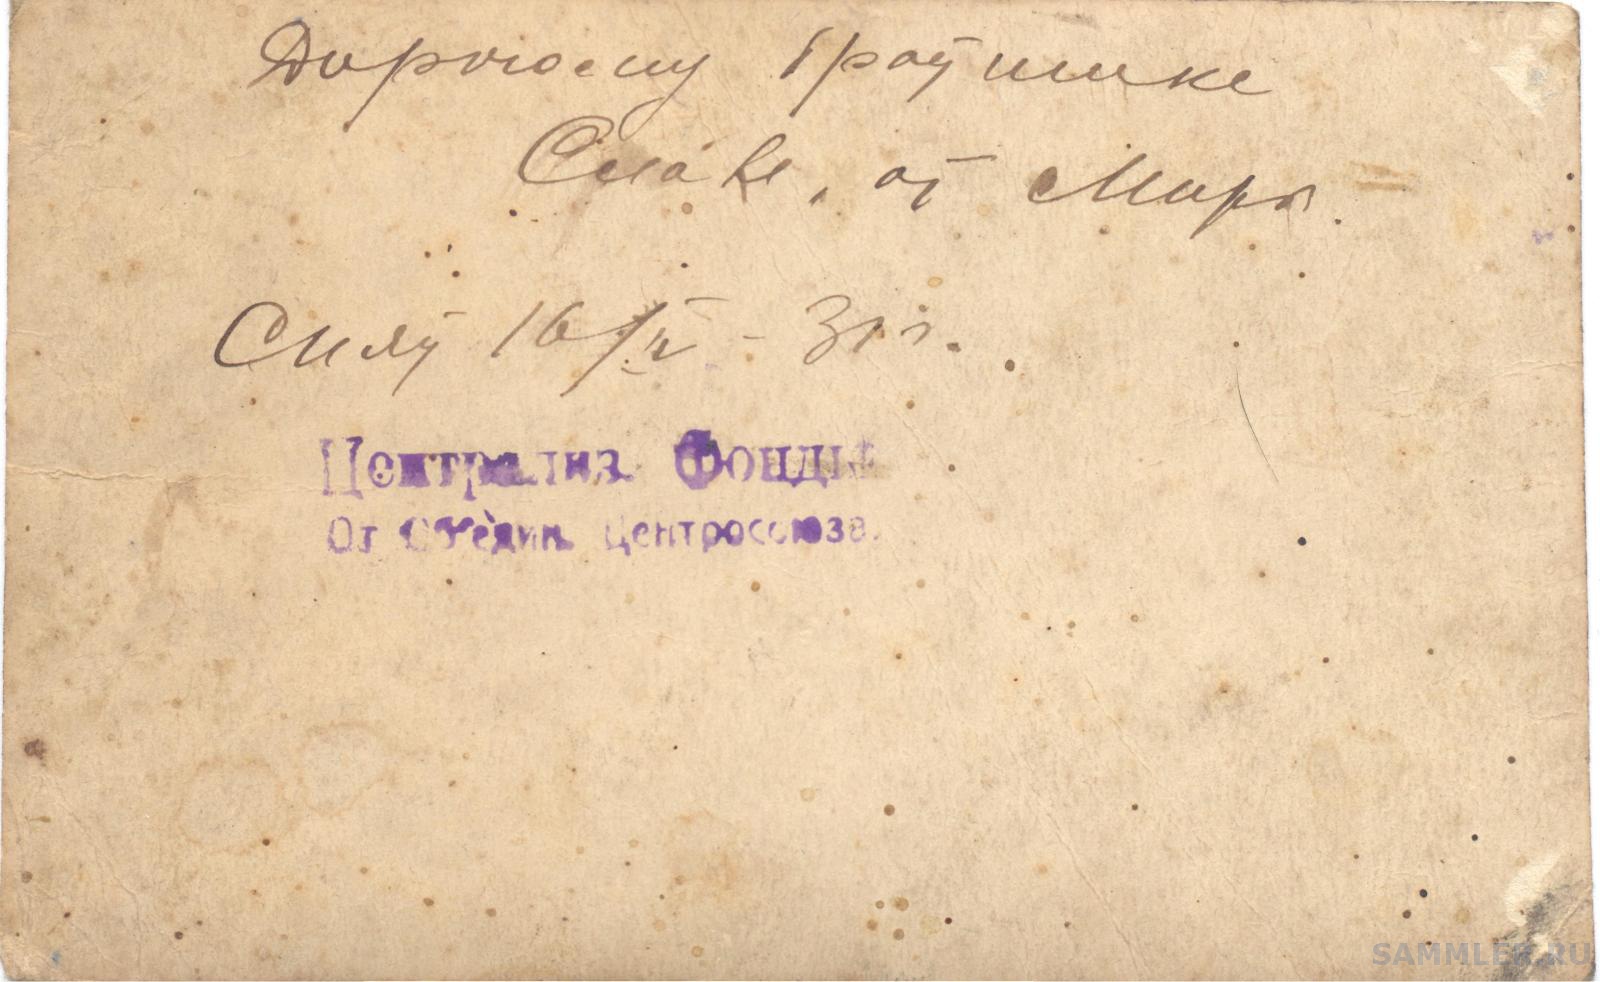 Дорогому братишке
Славе, от Мары.
Снят 16/V - 31 г.
Централиз. Фонды
От Объедин. Центросоюза.
SAMMLER.RU